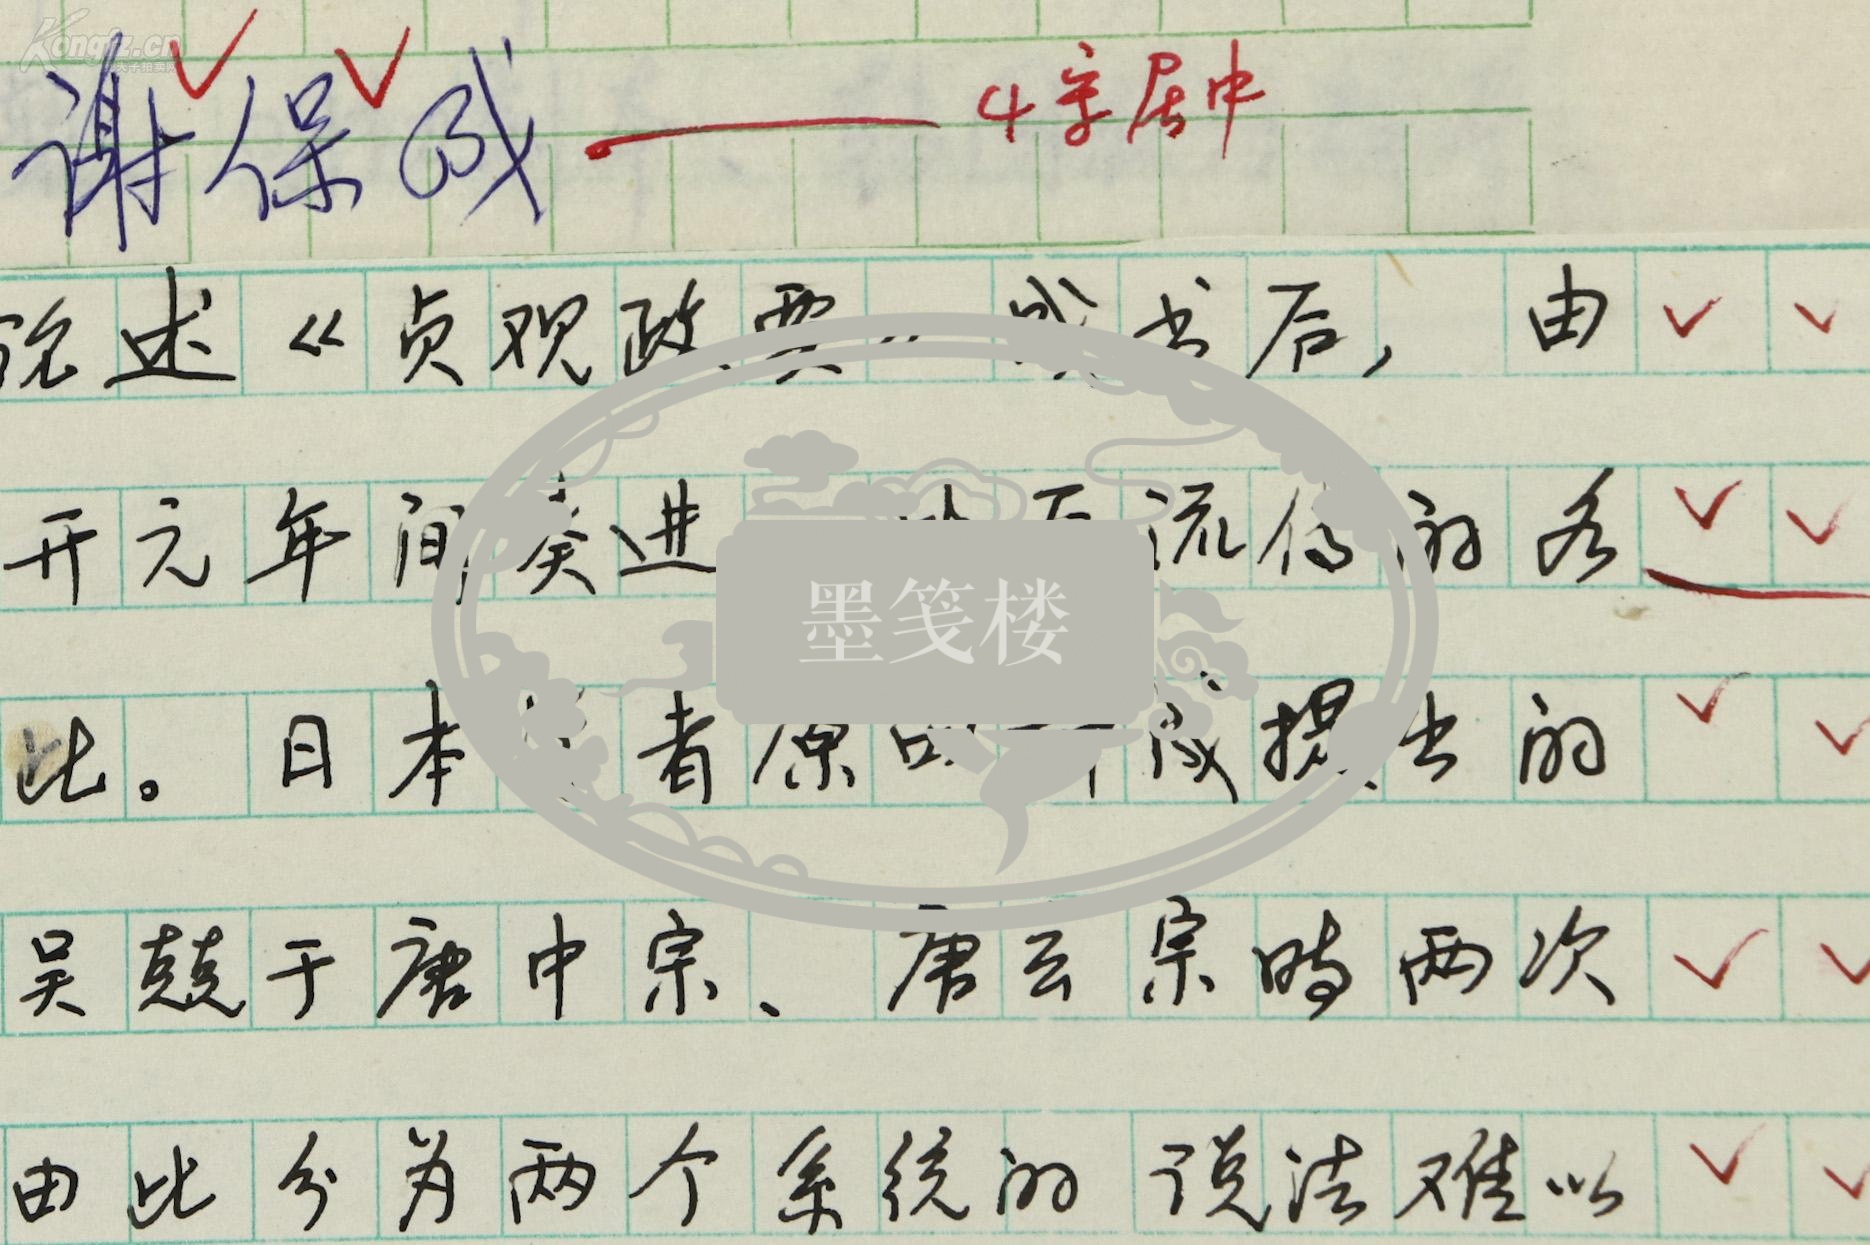 Kongfz.cn
谢保成 4字居中
论述《贞观政要》成书后，由
开元年间奏进 流传的各
墨笺楼
此。日本学者原田种成提出的
吴兢于唐中宗、唐玄宗时两次
由此分为两个系统的说法难以